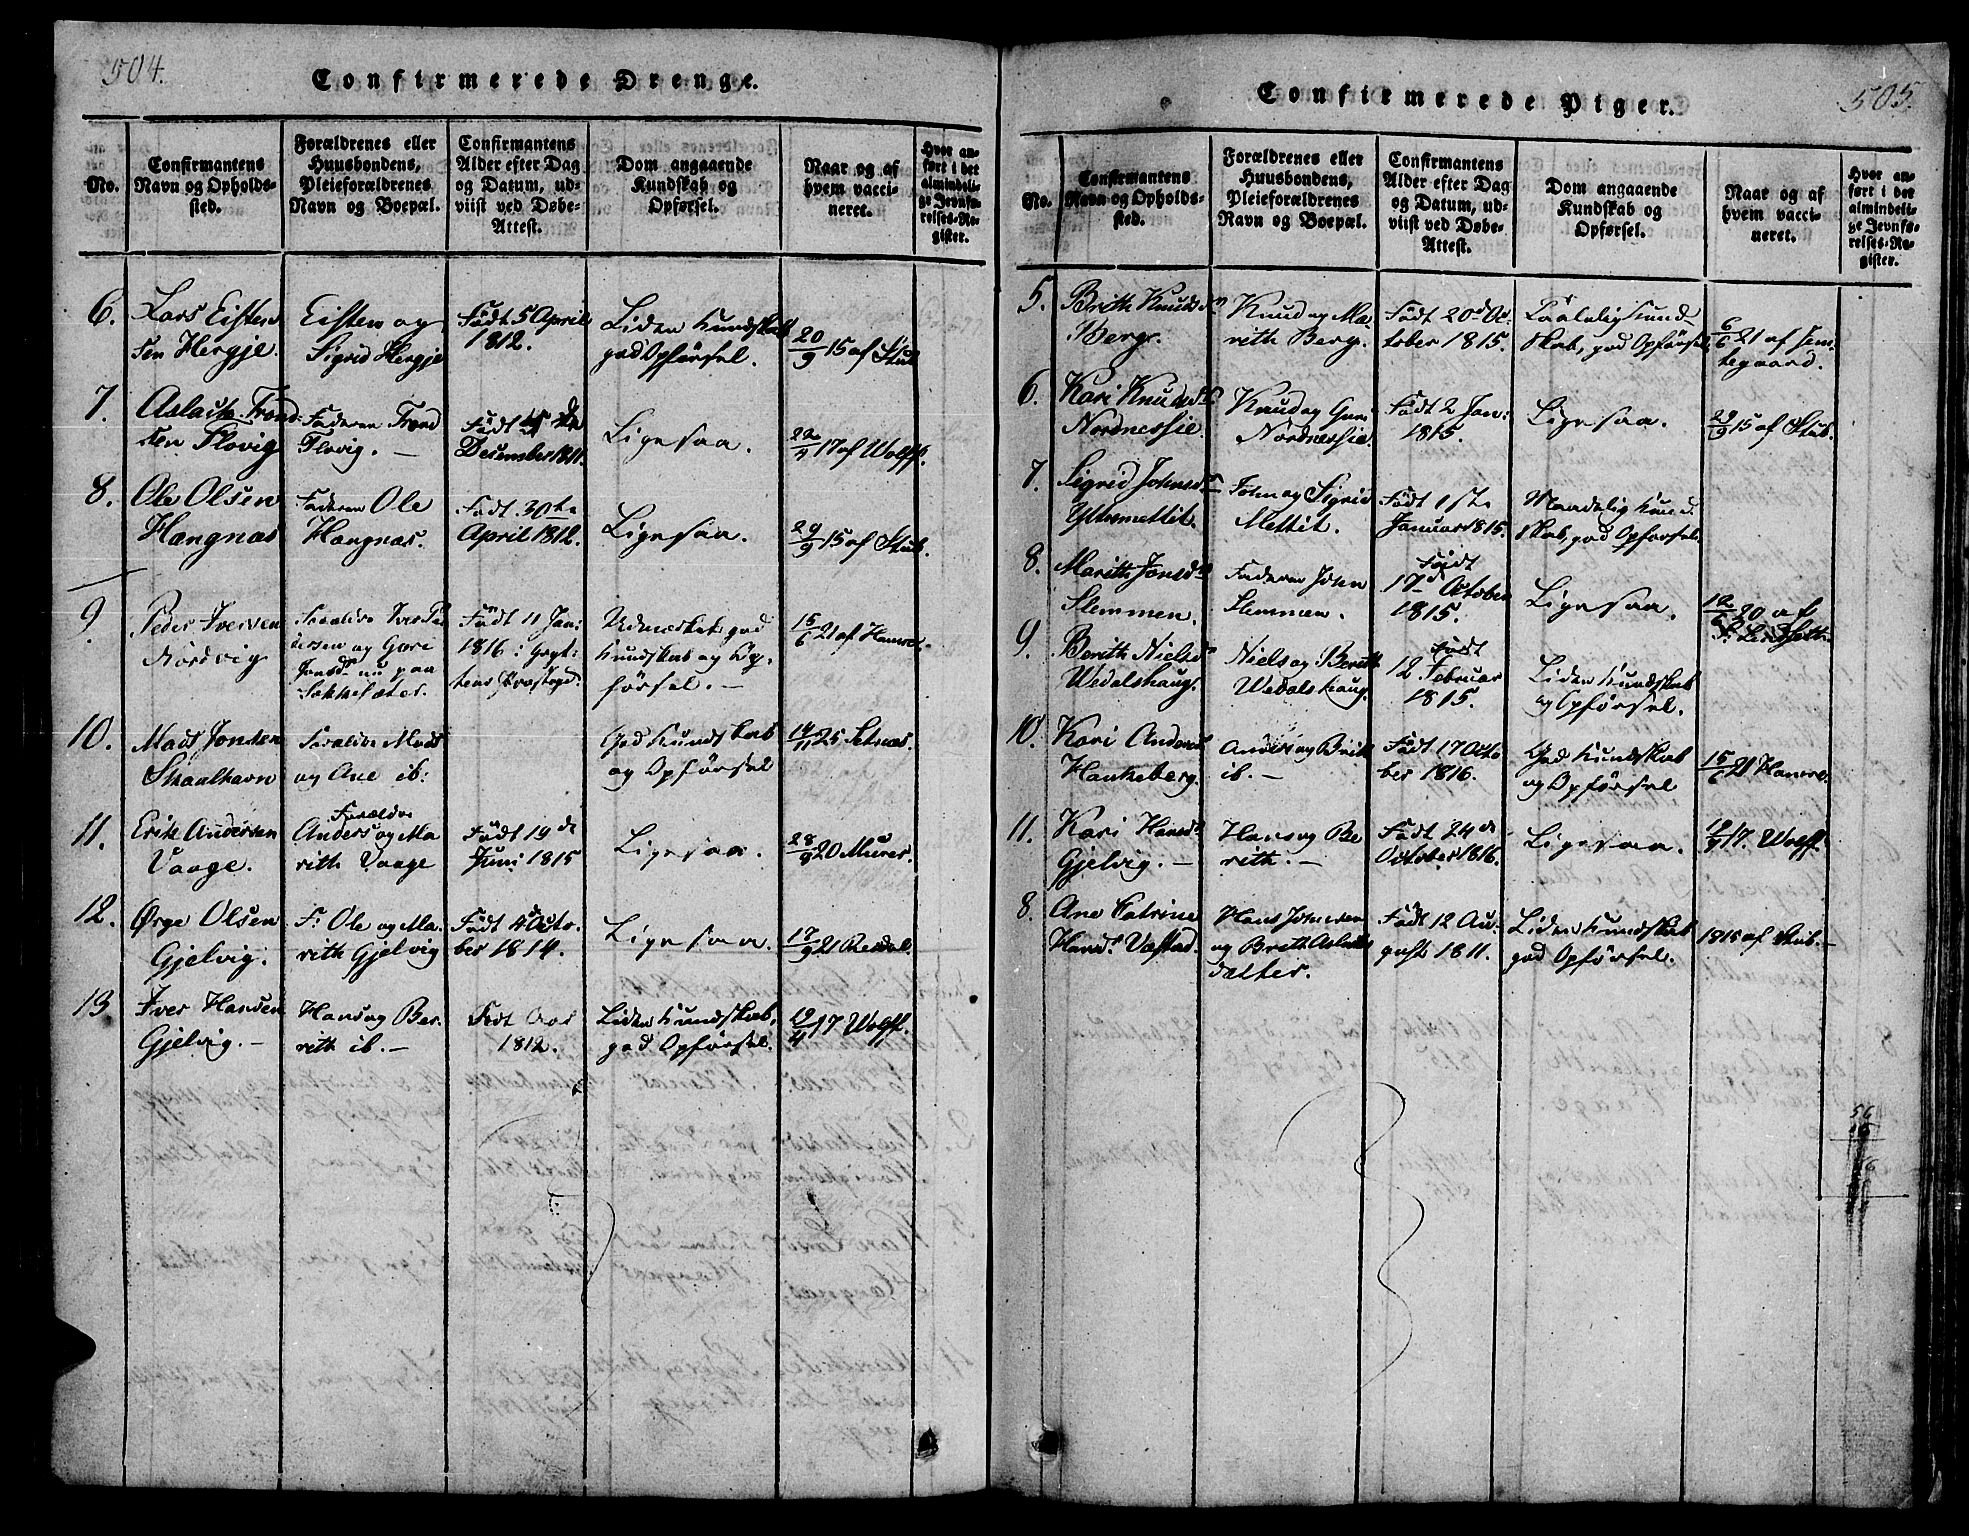 504.
Confirmerede Drenge.
No.
Confirmantens
Navn og Opholds-
sted.
Forældrenes eller
Huusbondens,
Pleieforældrenes
Navn og Boepæl.
Confirmantens
Alder efter Dag
og Datum, ud-
viist ved Døbe-
Attest.
Dom angaaende
Kundskab og
Opførsel.
Naar og af
hvem vacci-
neret.
Hvor an-
ført i det
almindeli-
ge Jevnfø-
relses-Re-
gister.
6.
Lars Eisten
sen Hergje.
Eisten og
Sigrid Hergje
Født 5 April
1812.
Liden Kundskab
god Opförsel.
20/9 15 af Stub
7.
Aslack Trond-
sen Flovig
Faderen Trond
Flovig. –
Født
December 1811.
Ligesaa.
22/4 17 af Wolff.
8.
Ole Olsen
Hangnæs
Faderen Ole
Hangnæs.
Født 30te
April 1812.
Ligesaa.
29/9 15 af Stub.
9.
Peder Iversen
Nordvig
Forældre Iver Pe
dersen og Guri
Jonsd. nu paa
Sakkesæter.
Födt 11 Jan:
1816:
Udmærket god
Kundskab og Op-
førsel. –
15/6 21 af Hamre.
10.
Mads Jonsen
Skaalhavn
Forældre Mads
og Ane ib:
God Kundskab
og Opførsel
14/11 25 Setnæs.
11.
Erik Andersen
Vaage.
Forældre
Anders og Ma
rith Vaage
Födt 19 de
Juni 1815
Ligesaa.
28/9 20 Murer.
12.
Ørge Olsen
Gjelvig.
F: Ole og Ma-
rith Gjelvig
Födt 4 Octo-
ber 1814.
Ligesaa.
17/9 21 Reidal.
13
Iver Hansen
Gjelvig. –
Hans og Be-
rith ib. –
Født Aar
1812.
Liden Kundskab,
god Opførsel.
19/4 17 Wolff.
505.
Confirmerede Piger.
No.
Confirmantens
Navn og Opholds-
sted.
Forældrenes eller
Huusbondens,
Pleieforældrenes
Navn og Boepæl.
Confirmantens
Alder efter Dag
og Datum, ud-
viist ved Døbe-
Attest.
Dom angaaende
Kundskab og
Opførsel.
Naar og af
hvem vacci-
neret.
Hvor an-
ført i det
almindeli-
ge Jevnfø-
relses-Re-
gister.
5.
Brith Knudsdn
Berg.
Knud og Ma-
rith Berg.
Født 20de Oc-
tober 1815.
Taalelig Kund-
skab, god Opførsel
6/6 21 af Jem-
tegaard.
6.
Kari Knudsd
Nordnessie.
Knud og Guri
Nordnessie
Født 2 Jan:
1815.
Ligesaa.
29/9 15 af Stub.
7.
Sigrid Johnsdn
Yttremettet.
John og Sigrid
Mettet.
Født 1ste
Januar 1815.
Maadelig Kund
skab, god Opførsel.
8.
Marith Jonsdn
Slemmen.
Faderen John
Slemmen.
Født
17de October
1815.
Ligesaa.
12/6 20 af
9.
Berith Nielsdn
Wedalshaug.
Niels og Berith
Wedalshaug.
Født
12 Februar
1815.
Liden Kundskab
og Opførsel.
10.
Kari Andersd
Haukeberg.
Anders og Brith
ib. –
Födt 17 Octo
ber 1816.
God Kundskab
og Opførsel
15/6 21 Hamre.
11.
Kari Hansdn
Gjelvig. –
Hans og Be
rith. –
Født 24 de
October 1816.
Ligesaa.
19/4 17. Wolff.
8.
Ane Catrine
Hansdn Væstad.
Hans Johnsen
og Brith Aslaks
datter.
Født 12 Au-
gust 1811.
Liden Kundskab
god Opførsel.
1815 af Stub. –
56